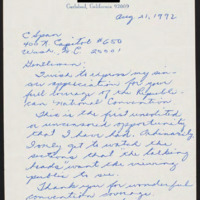 Carlsbad, California 92009
Aug 21, 1992
C Span
400 N. Capitol #650
Wash. D C 20001
Gentlemen:
I wish to express my sin-
cere appreciation for your
full coverage of the Republi-
can National Convention
This is the first unedited
or uncensored opportunity
that I have had. Ordinarily
I only get to watch the
sections that the
want the viewing
public to see.
Thank you for wonderful
convention coverage